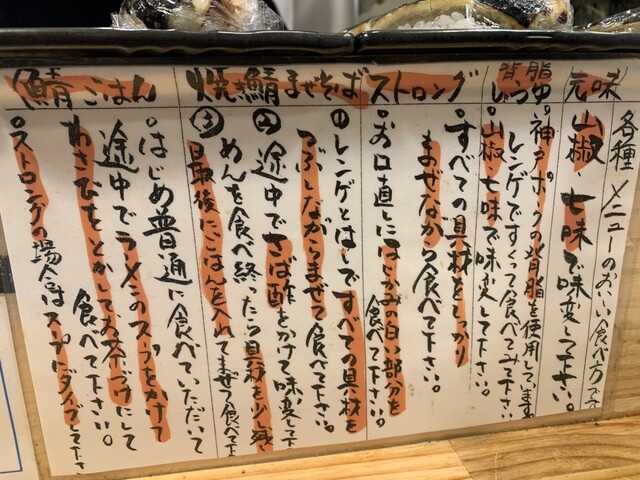 各種メニューのおいしい食べ方です
元味
山椒 七味で味変して下さい。
背脂しょうゆ
神戸ポークの背脂を使用しています。
レンゲですくって食べてみて下さい
山椒 七味で味変して下さい。
ストロング
すべての具材をしっかり
まぜながら食べて下さい。
お口直しにはじかみの白い部分を
食べて下さい。
焼き鯖まぜそば
①レンゲとはしですべての具材を
つぶしながらまぜて下さい。
②途中でさば酢をかけて味変して下さい
めんを食べ終たら具材を少し残し
③最後にごはんを入れてまぜて食べて下さい
鯖ごはん
はじめ普通に食べていただいて
途中でラーメンのスープをかけて
わさびをとかしてお茶づけにして
食べて下さい。
ストロングの場合はスープにダイブして下さい